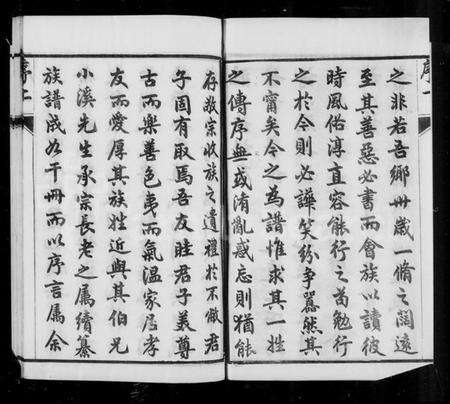 序一
之非若吾鄉卅歲一脩之闊遠
至其善惡必書而會族以讀彼
時風俗淳直容能行之茍勉行
之於今則必譁笑紛爭囂然其
不甯矣今之為譜惟求其一姓
之傳序無或淆亂惑忘則猶能
存敬宗收族之遺禮於不儆君
子固有取焉吾友眭君子美尊
古而樂善色夷而氣溫家居孝
友而愛厚其族姓近與其伯兄
小溪先生承宗長老之屬續纂
族譜成如干冊而以序言屬余
序二